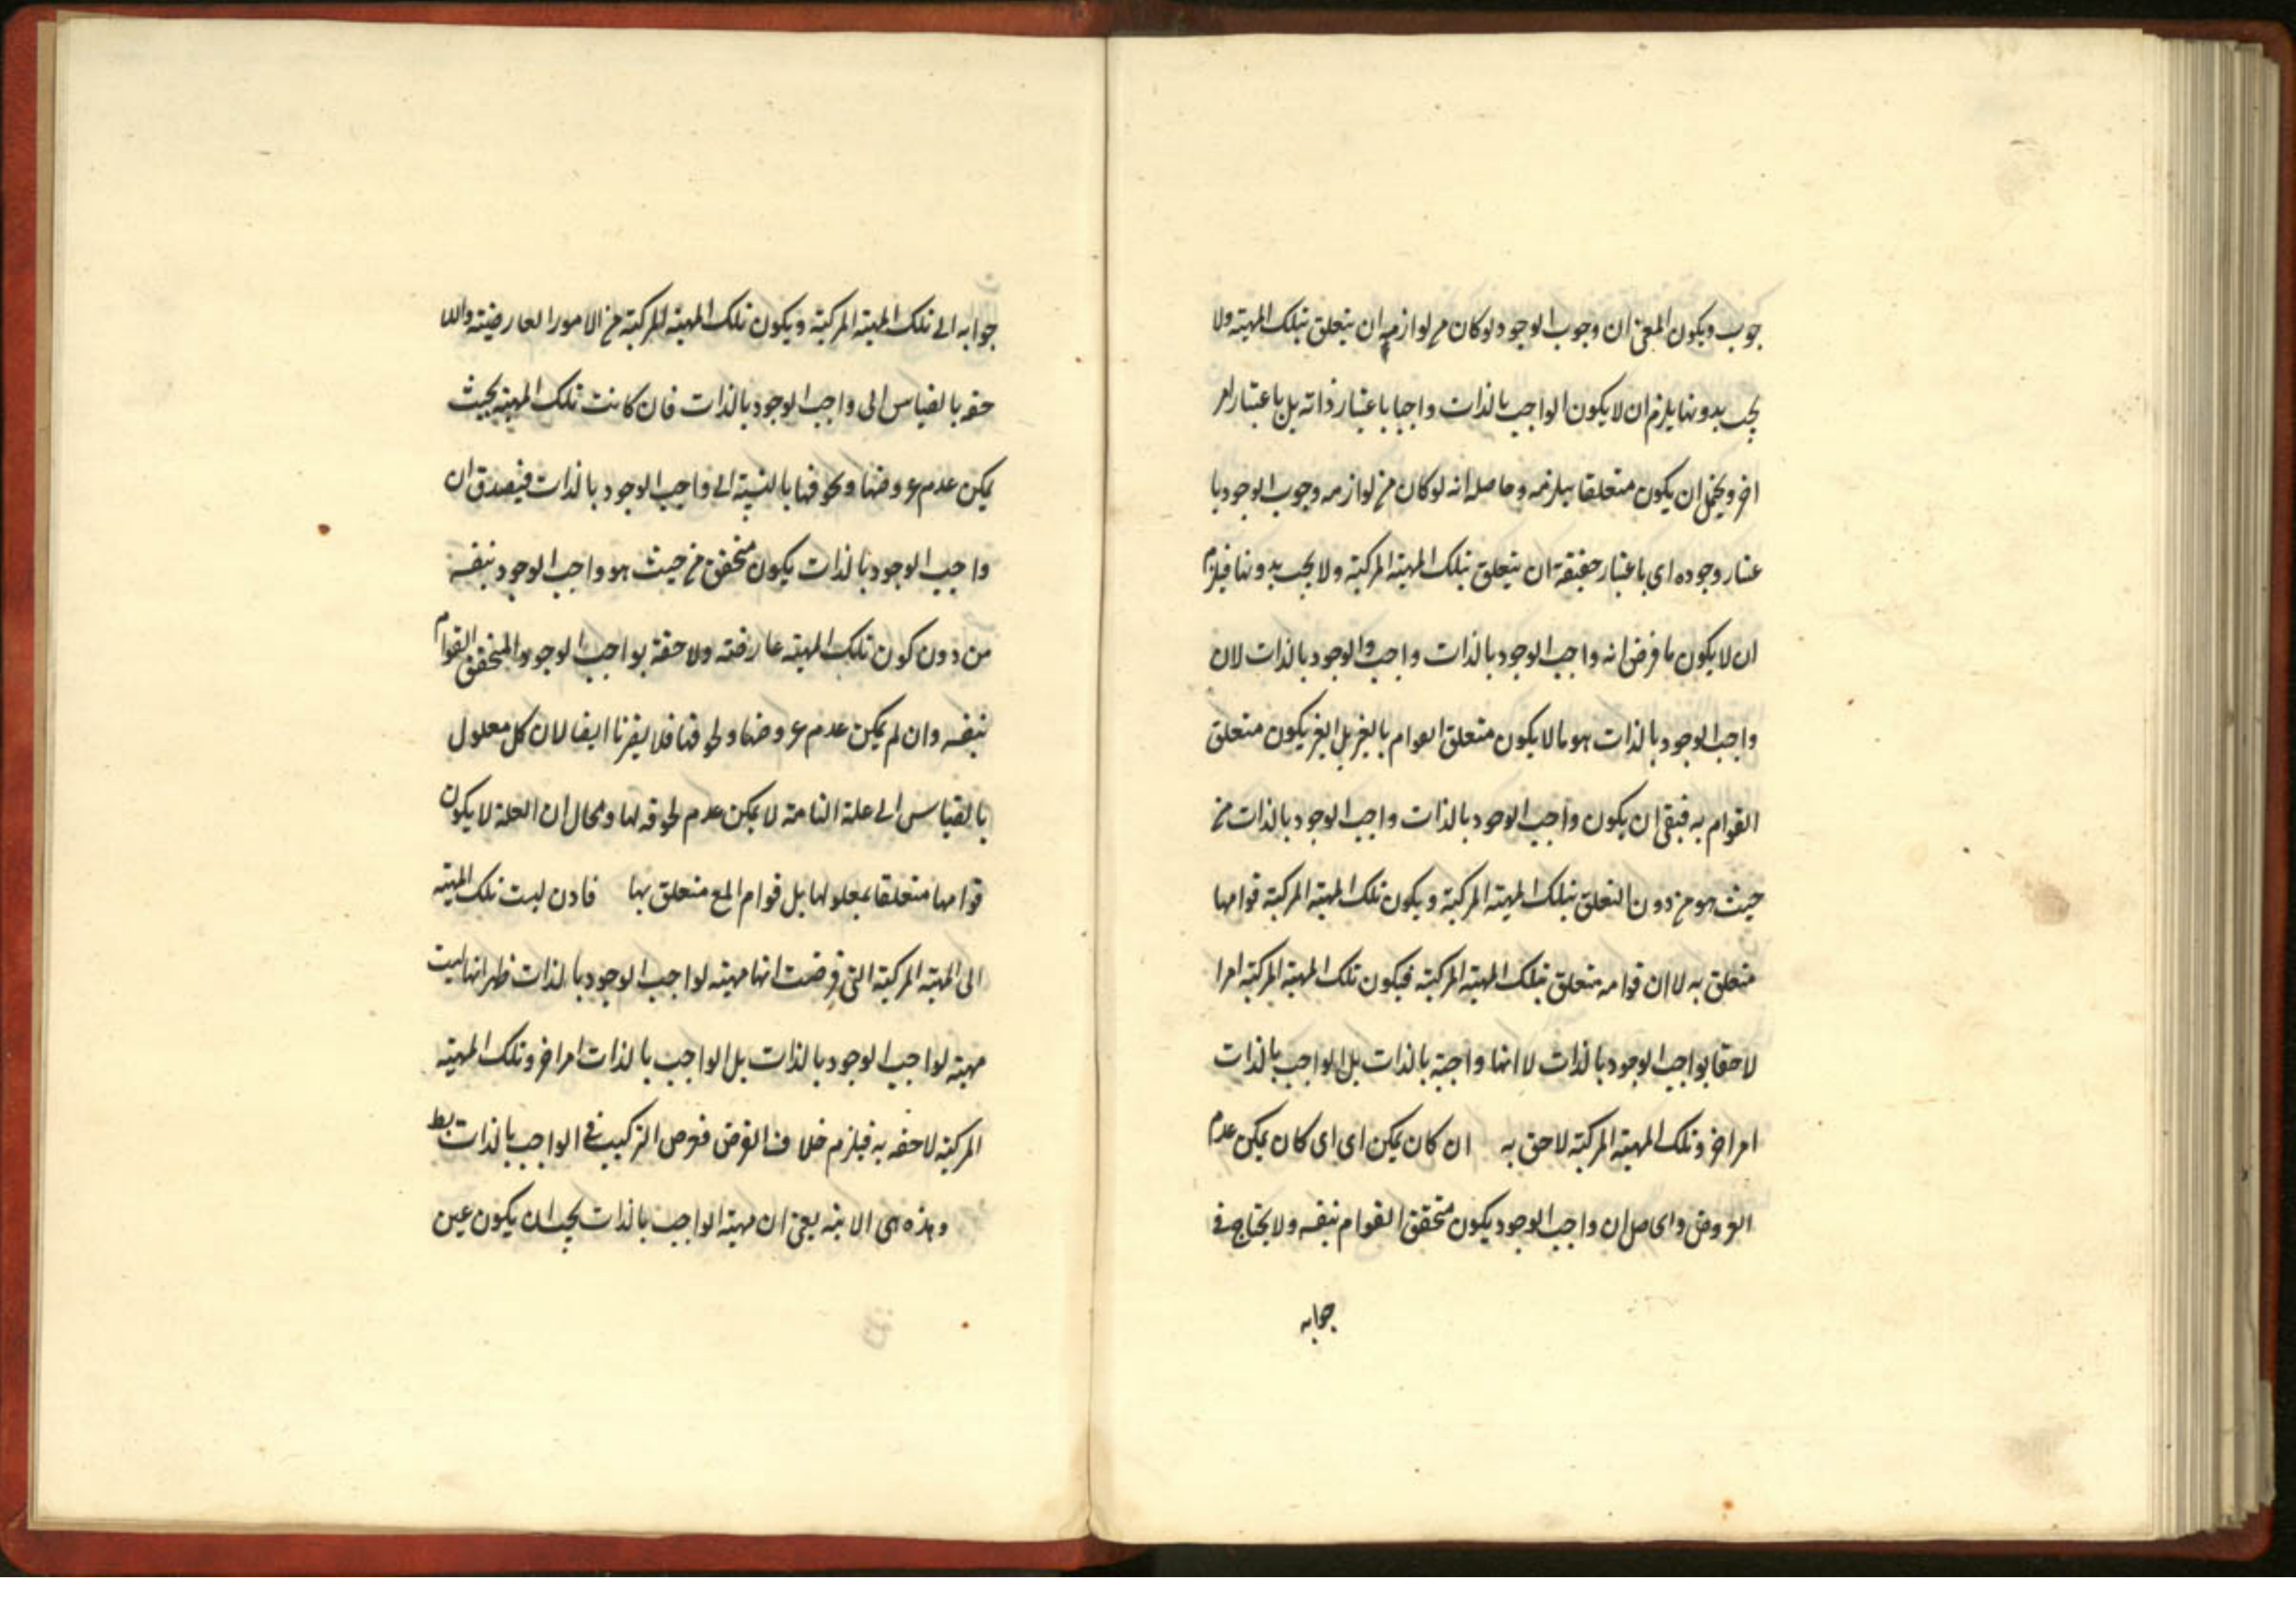 جوب ويكون المعنى ان وجوب الوجود لو كان من لوازمه ان يتعلق بتلك المهية ولا
يجب بدونها يلزم ان لا يكون الواجب بالذات واجبا باعتبار ذاته بل باعتبار امر
اخر ويحتمل ان يكون متعلقا بيلزمه وحاصله انه لو كان من لوازمه وجوب الوجود با
عتبار وجوده اى باعتبار حقيقته ان يتعلق بتلك المهية المركبة ولا يجب بدونها فيلزم
ان لا يكون ما فرض انه واجب الوجود بالذات واجب الوجود بالذات لان
واجب الوجود بالذات هو ما لا يكون متعلق القوام بالغير بل الغير يكون متعلق
القوام به فبقى ان يكون واجب الوجود بالذات واجب الوجود بالذات من
حيث هو من دون التعلق بتلك المهية المركبة ويكون تلك المهية المركبة قوامها
متعلق به لا ان قوامه متعلق بتلك المهية المركبة فيكون تلك المهية المركبة امرا
لاحقا بواجب الوجود بالذات لا انها واجبة بالذات بل الواجب بالذات
امر اخر وتلك المهية المركبة لاحق به ان كان يمكن اى اى كان يمكن عدم
العروض والحاصل ان واجب الوجود يكون متحقق القوام بنفسه ولا يحتاج فى
جوابه
جوابه الى تلك المهية المركبة ويكون تلك المهية المركبة من الامور العارضية واللا
حقه بالقياس الى واجب الوجود بالذات فان كانت تلك المهية بحيث
يمكن عدم عروضها ولحوقها بالنسبة الى واجب الوجود بالذات فيصدق ان
واجب الوجود بالذات يكون متحقق من حيث هو واجب الوجود بنفسه
من دون كون تلك المهية عارضة ولاحقة بواجب الوجود والمتحقق القوام
بنفسه وان لم يمكن عدم عروضها ولحوقها فلا يضرنا ايضا لان كل معلول
بالقياس الى علته التامة لا يمكن عدم لحوقه لها ومحال ان العلة لا يكون
قوامها متعلقا بمعلولها بل قوام المع متعلق بها فاذن ليست تلك المهية
الى المهية المركبة التى فرضت انها مهية لواجب الوجود بالذات ظهر انها ليست
مهية لواجب الوجود بالذات بل الواجب بالذات امر اخر وتلك المهية
المركبة لاحقه به فيلزم خلاف الفرض ففرض التركيب فى الواجب بالذات بط
وهذه هى الانية يعنى ان مهية الواجب بالذات يجب ان يكون عين